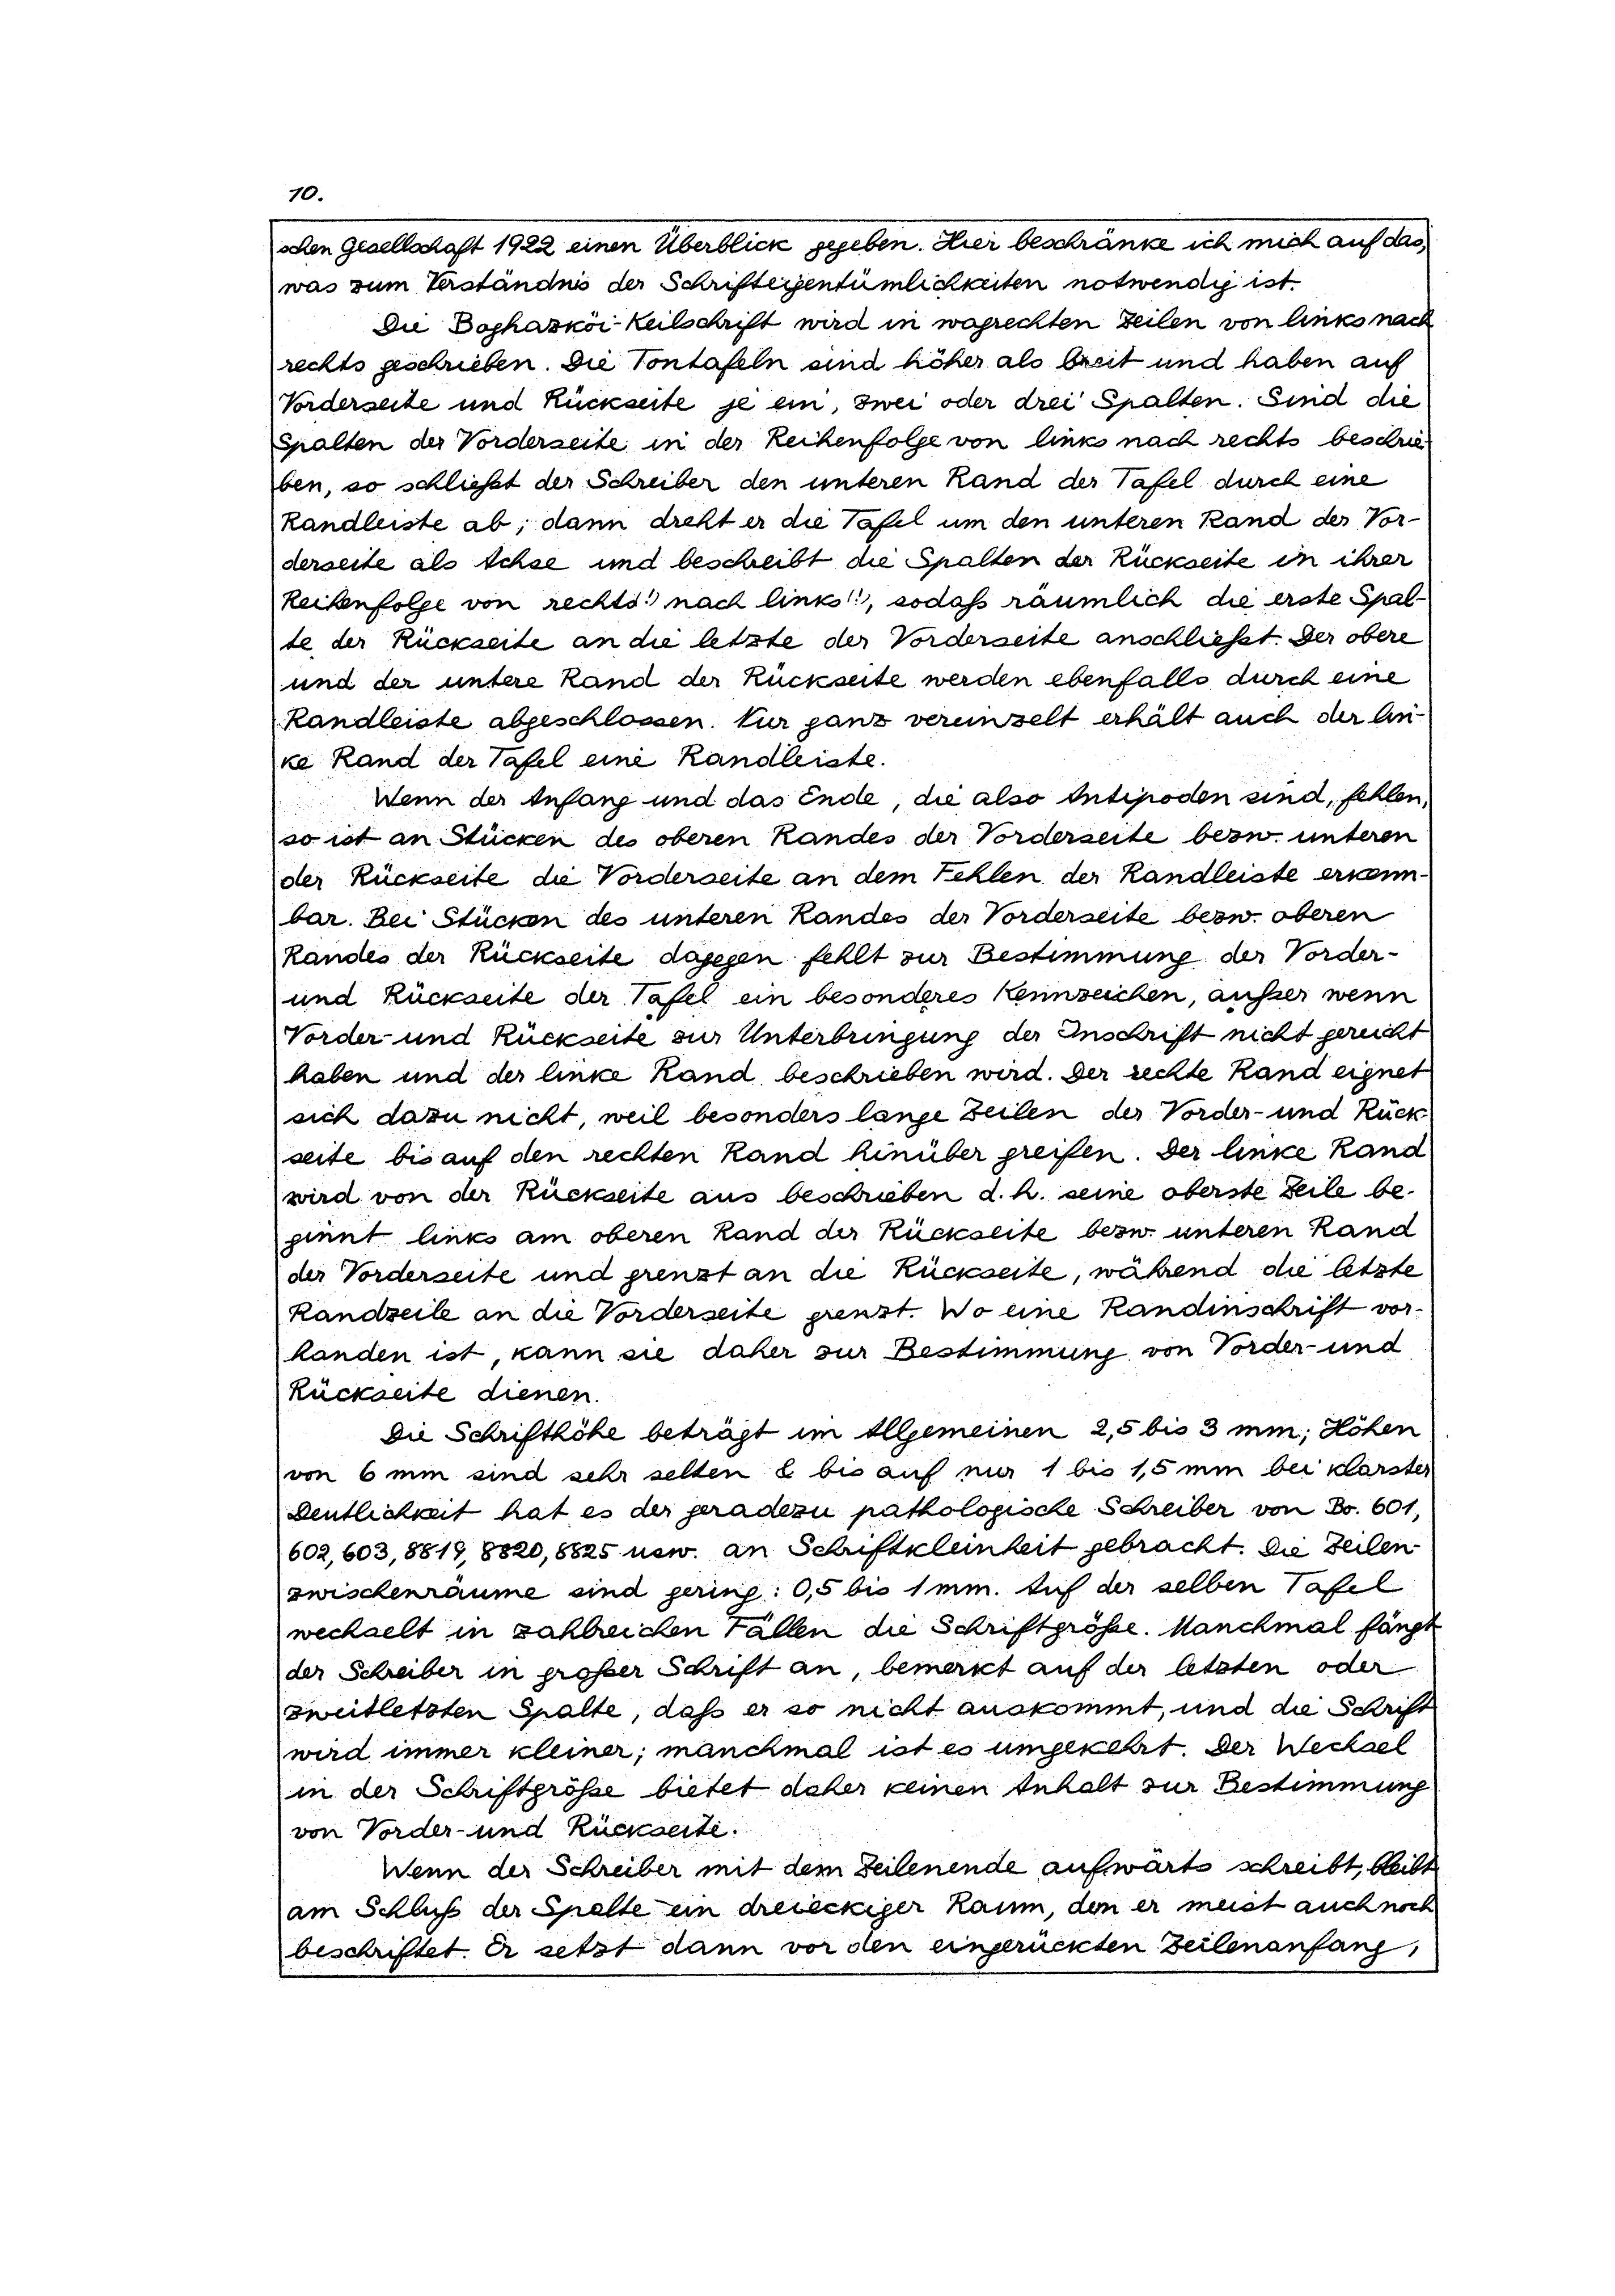 10.
schen Gesellschaft 1922 einen Überblick gegeben. Hier beschränke ich mich auf das,
was zum Verständnis der Schrifteigentümlichkeiten notwendig ist.
Die Boghazköi-Keilschrift wird in wagrechten Zeilen von links nach
rechts geschrieben. Die Tontafeln sind höher als breit und haben auf
Vorderseite und Rückseite je ein, zwei oder drei Spalten. Sind die
Spalten der Vorderseite in der Reihenfolge von links nach rechts beschrie-
ben, so schließt der Schreiber den unteren Rand der Tafel durch eine
Randleiste ab; dann dreht er die Tafel um den unteren Rand der Vor-
derseite als Achse und beschreibt die Spalten der Rückseite in ihrer
Reihenfolge von rechts(!) nach links(!), sodaß räumlich die erste Spal-
te der Rückseite an die letzte der Vorderseite anschließt. Der obere
und der untere Rand der Rückseite werden ebenfalls durch eine
Randleiste abgeschlossen. Nur ganz vereinzelt erhält auch der lin-
ke Rand der Tafel eine Randleiste.
Wenn der Anfang und das Ende, die also Antipoden sind, fehlen,
so ist an Stücken des oberen Randes der Vorderseite bezw. unteren
der Rückseite die Vorderseite an dem Fehlen der Randleiste erkenn-
bar. Bei Stücken des unteren Randes der Vorderseite bezw. oberen
Randes der Rückseite dagegen fehlt zur Bestimmung der Vorder-
und Rückseite der Tafel ein besonderes Kennzeichen, außer wenn
Vorder- und Rückseite zur Unterbringung der Inschrift nicht gereicht
haben und der linke Rand beschrieben wird. Der rechte Rand eignet
sich dazu nicht, weil besonders lange Zeilen der Vorder- und Rück-
seite bis auf den rechten Rand hinüber greifen. Der linke Rand
wird von der Rückseite aus beschrieben d.h. seine oberste Zeile be-
ginnt links am oberen Rand der Rückseite bezw. unteren Rand
der Vorderseite und grenzt an die Rückseite, während die letzte
Randzeile an die Vorderseite grenzt. Wo eine Randinschrift vor-
handen ist, kann sie daher zur Bestimmung von Vorder- und
Rückseite dienen.
Die Schrifthöhe beträgt im Allgemeinen 2,5 bis 3 mm; Höhen
von 6 mm sind sehr selten & bis auf nur 1 bis 1,5 mm bei klarster
Deutlichkeit hat es der geradezu pathologische Schreiber von Bo. 601,
602, 603, 8819, 8820, 8825 usw. an Schriftkleinheit gebracht. Die Zeilen-
zwischenräume sind gering: 0,5 bis 1 mm. Auf der selben Tafel
wechselt in zahlreichen Fällen die Schriftgröße. Manchmal fängt
der Schreiber in großer Schrift an, bemerkt auf der letzten oder
zweitletzten Spalte, daß er so nicht auskommt, und die Schrift
wird immer kleiner; manchmal ist es umgekehrt. Der Wechsel
in der Schriftgröße bietet daher keinen Anhalt zur Bestimmung
von Vorder- und Rückseite.
Wenn der Schreiber mit dem Zeilenende aufwärts schreibt, bleibt
am Schluß der Spalte ein dreieckiger Raum, den er meist auch noch
beschriftet. Er setzt dann vor den eingerückten Zeilenanfang,